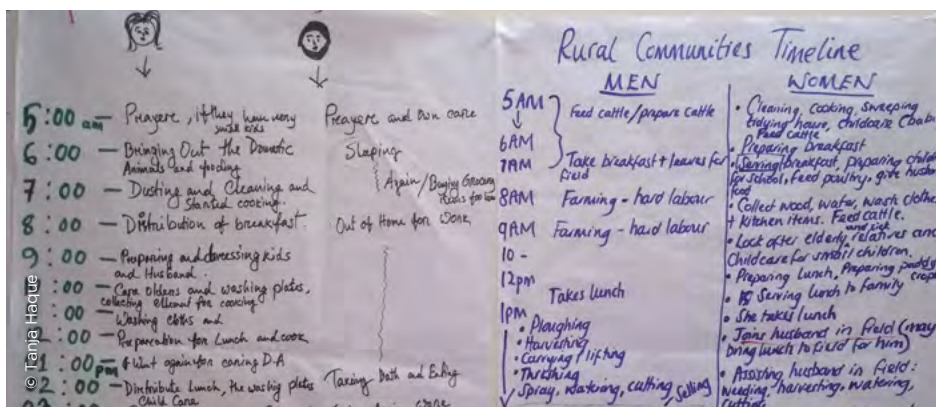 5:00 am — Prayere, if they have very small kids
6:00 — Bringing Out the Domestic Animals and feeding
7:00 — Dusting and Cleaning and Started cooking.
8:00 — Distribution of breakfast.
9:00 — Preparing and dressing kids and Husband.
— Care Olders and washing plates, collecting ellement for cooking
:00 — Washing cloths and
:00 — Preparation for Lunch and cook
1:00 pm
2:00 — Distribute Lunch, the washing plates
Child Care
Prayere and own care
Slaping
Again / Buying Grocery
Out of Home for Work
Taking Bath and Eating
Rural Communities Timeline
MEN
5AM
6AM
Feed cattle/prepare cattle
7AM
Take breakfast + leaves for field
8AM Farming - hard labour
9AM Farming - hard labour
10 -
12pm
Takes lunch
1pm
• Ploughing
• Harvesting
• Carrying / lifting
• Thrashing
Spray, watering, cutting, Selling
WOMEN
• Cleaning, cooking, sweeping
tidying house, childcare
Feed cattle
• Preparing breakfast
• Serving breakfast, preparing
for school, feed poultry, give
food
• Collect wood, water, wash
+ kitchen items. Feed cattle.
• Look after elderly and sick relatives and
Childcare for small children.
• Preparing lunch, Preparing paddy
crops
• Serving lunch to family
• She takes lunch
• Joins husband in field (may
bring lunch to field for him)
• Assisting husband in field:
weeding, harvesting, watering,
cutting
© Tanja Haque